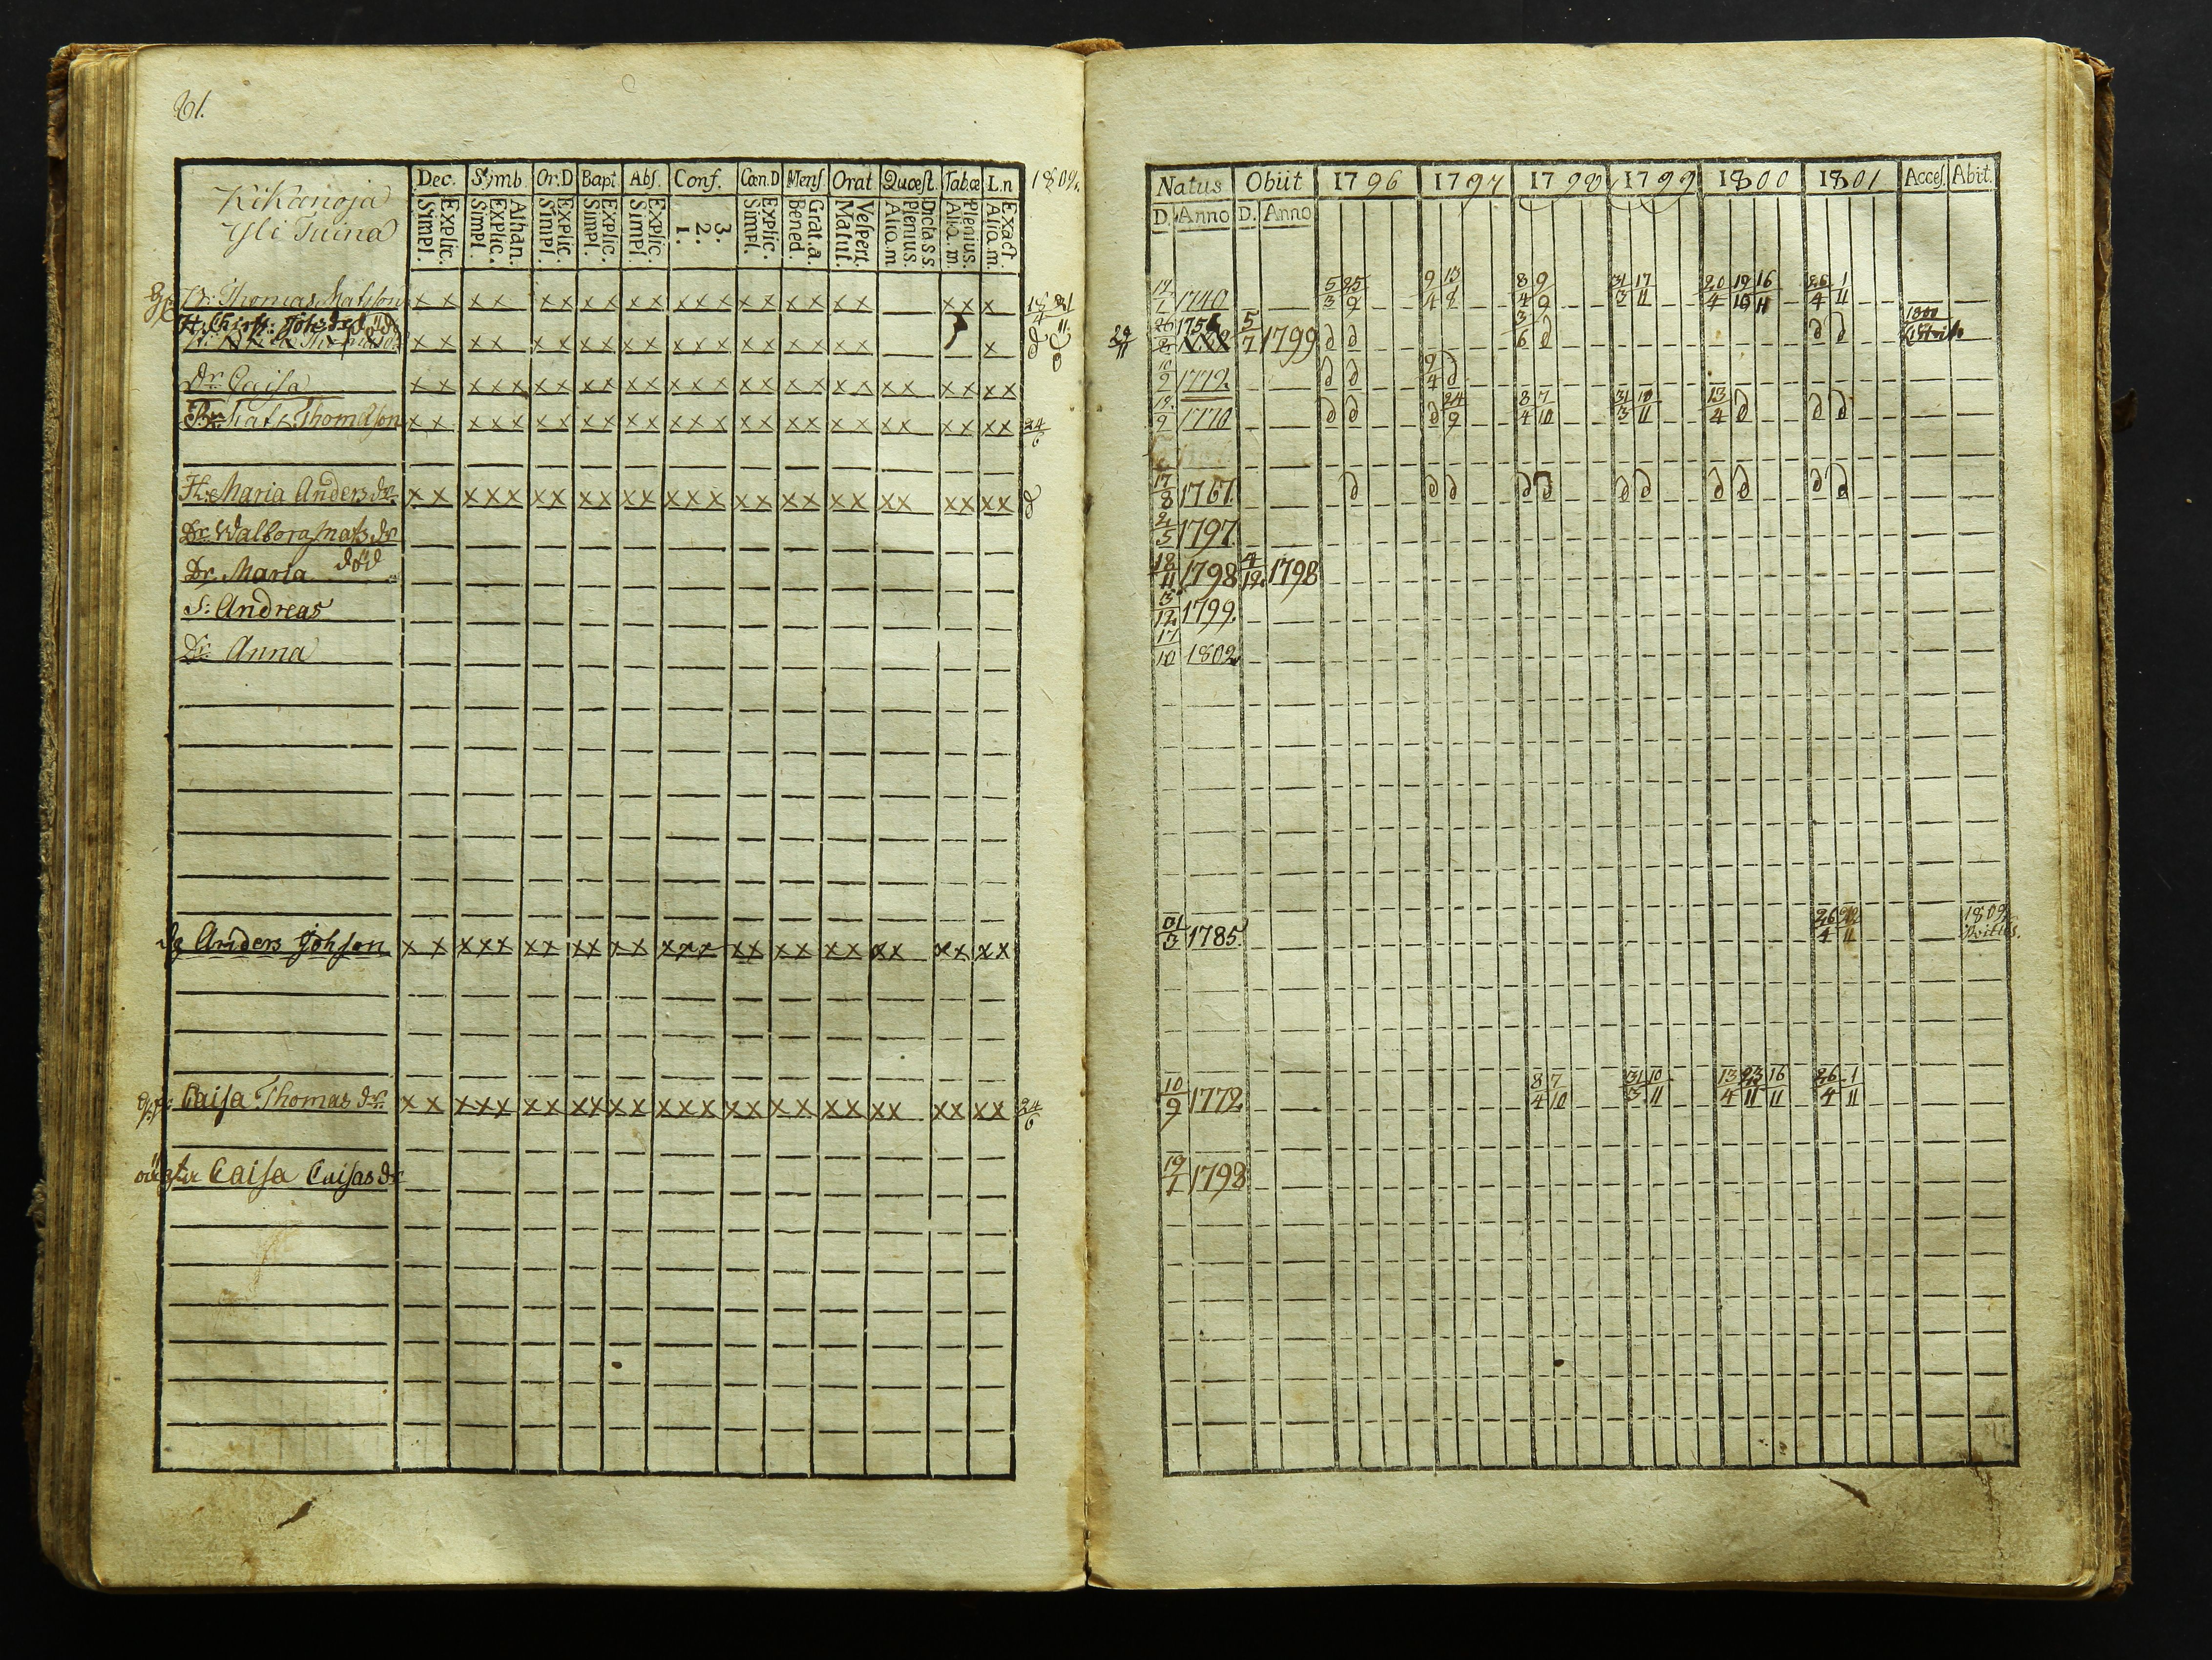 61.
Kikanoja
Yli Tuina
Dec. Symb. Or.D Bapt. Abs. Conf. Cœn.D Mens. Orat Quœst. Tab.œ L.n 1802.
Explic. Simpl. Athan. Explic. Simpl. Explic. Simpl. Explic. Simpl. Explic. Simpl. 3. 2. 1. Explic. Simpl. Grat.a. Bened. Vespert. Matut. Dicta s.s. Plenius. Alio.m Plenius. Alio.m. Exact. Alio.m.
Thomas Matsson x x x x x x x x x x x x x x x x x x x x x x
H. Christ: Johsdr död x x x x x x x x x x x x x x x x x x x
Dr. Caisa x x x x x x x x x x x x x x x x x x x x x x x x x x
Thomasson x x x x x x x x x x x x x x x x x x x x x x x x x 24/6
H. Maria Andersdr. x x x x x x x x x x x x x x x x x x x x x x x x x x d
Dr. Walborg Matsdr
Dr. Maria död
S: Andreas
Dr. Anna
Anders Johson x x x x x x x x x x x x x x x x x x x x x x x x x x
Caisa Thomasdr. x x x x x x x x x x x x x x x x x x x x x x x x x x 24/6
Caisa Caisasdr
Natus Obiit 1796 1797 1798 1799 1800 1801 Acces. Abit.
D. Anno D. Anno
1740 5/3 25/9 9/4 13/8 8/4 9/9 31/3 17/11 20/4 19/10 16/11 26/4 1/11
5/7 1799 d d 3/6 d d d 1800
10/9 1772 d d 9/4 d
19/9 1770 d d d 24/9 8/4 7/10 31/3 10/11 13/4 d d d
17/8 1767 d d d d d d d d d d d
2/5 1797.
18/11 1798 4/12 1798
3/12 1799.
17/10 1802
31/3 1785 26/4 22/11 1802
10/9 1772 8/4 7/10 31/3 10/11 13/4 23/11 16/11 26/4 1/11
19/1 1798